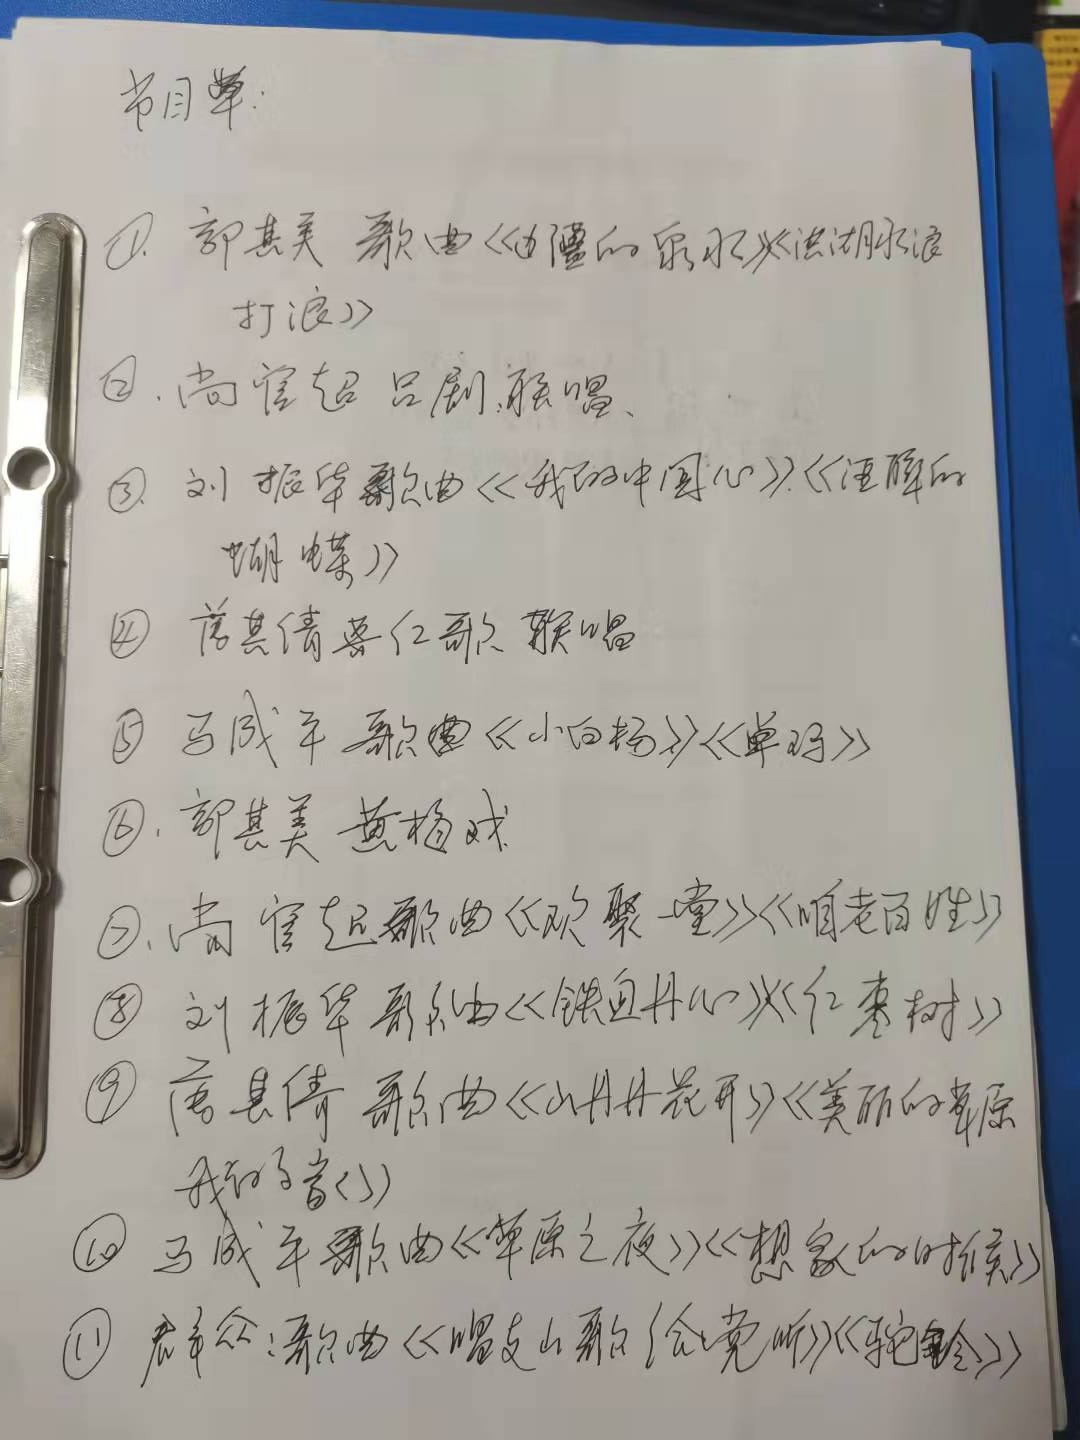 节目单:
①. 郭其美 歌曲《边疆的泉水》《洪湖水浪
打浪》
②. 尚官超 吕剧联唱、
③. 刘振华歌曲《我的中国心》、《酒醉的
蝴蝶》
④ 其倩 红歌联唱
⑤ 马成平 歌曲《小白杨》《单
⑥. 郭其美 黄梅戏
⑦. 尚官超歌曲《欢聚一堂》《咱老百姓》
⑧ 刘振华 歌曲《铁血丹心》《红枣树》
⑨ 其倩 歌曲《山丹丹花开》《美丽的草原
我的
⑩ 马成平歌曲《草原之夜》《想家的时候》
⑪ 群众:歌曲《唱支山歌给党听》《驼铃》